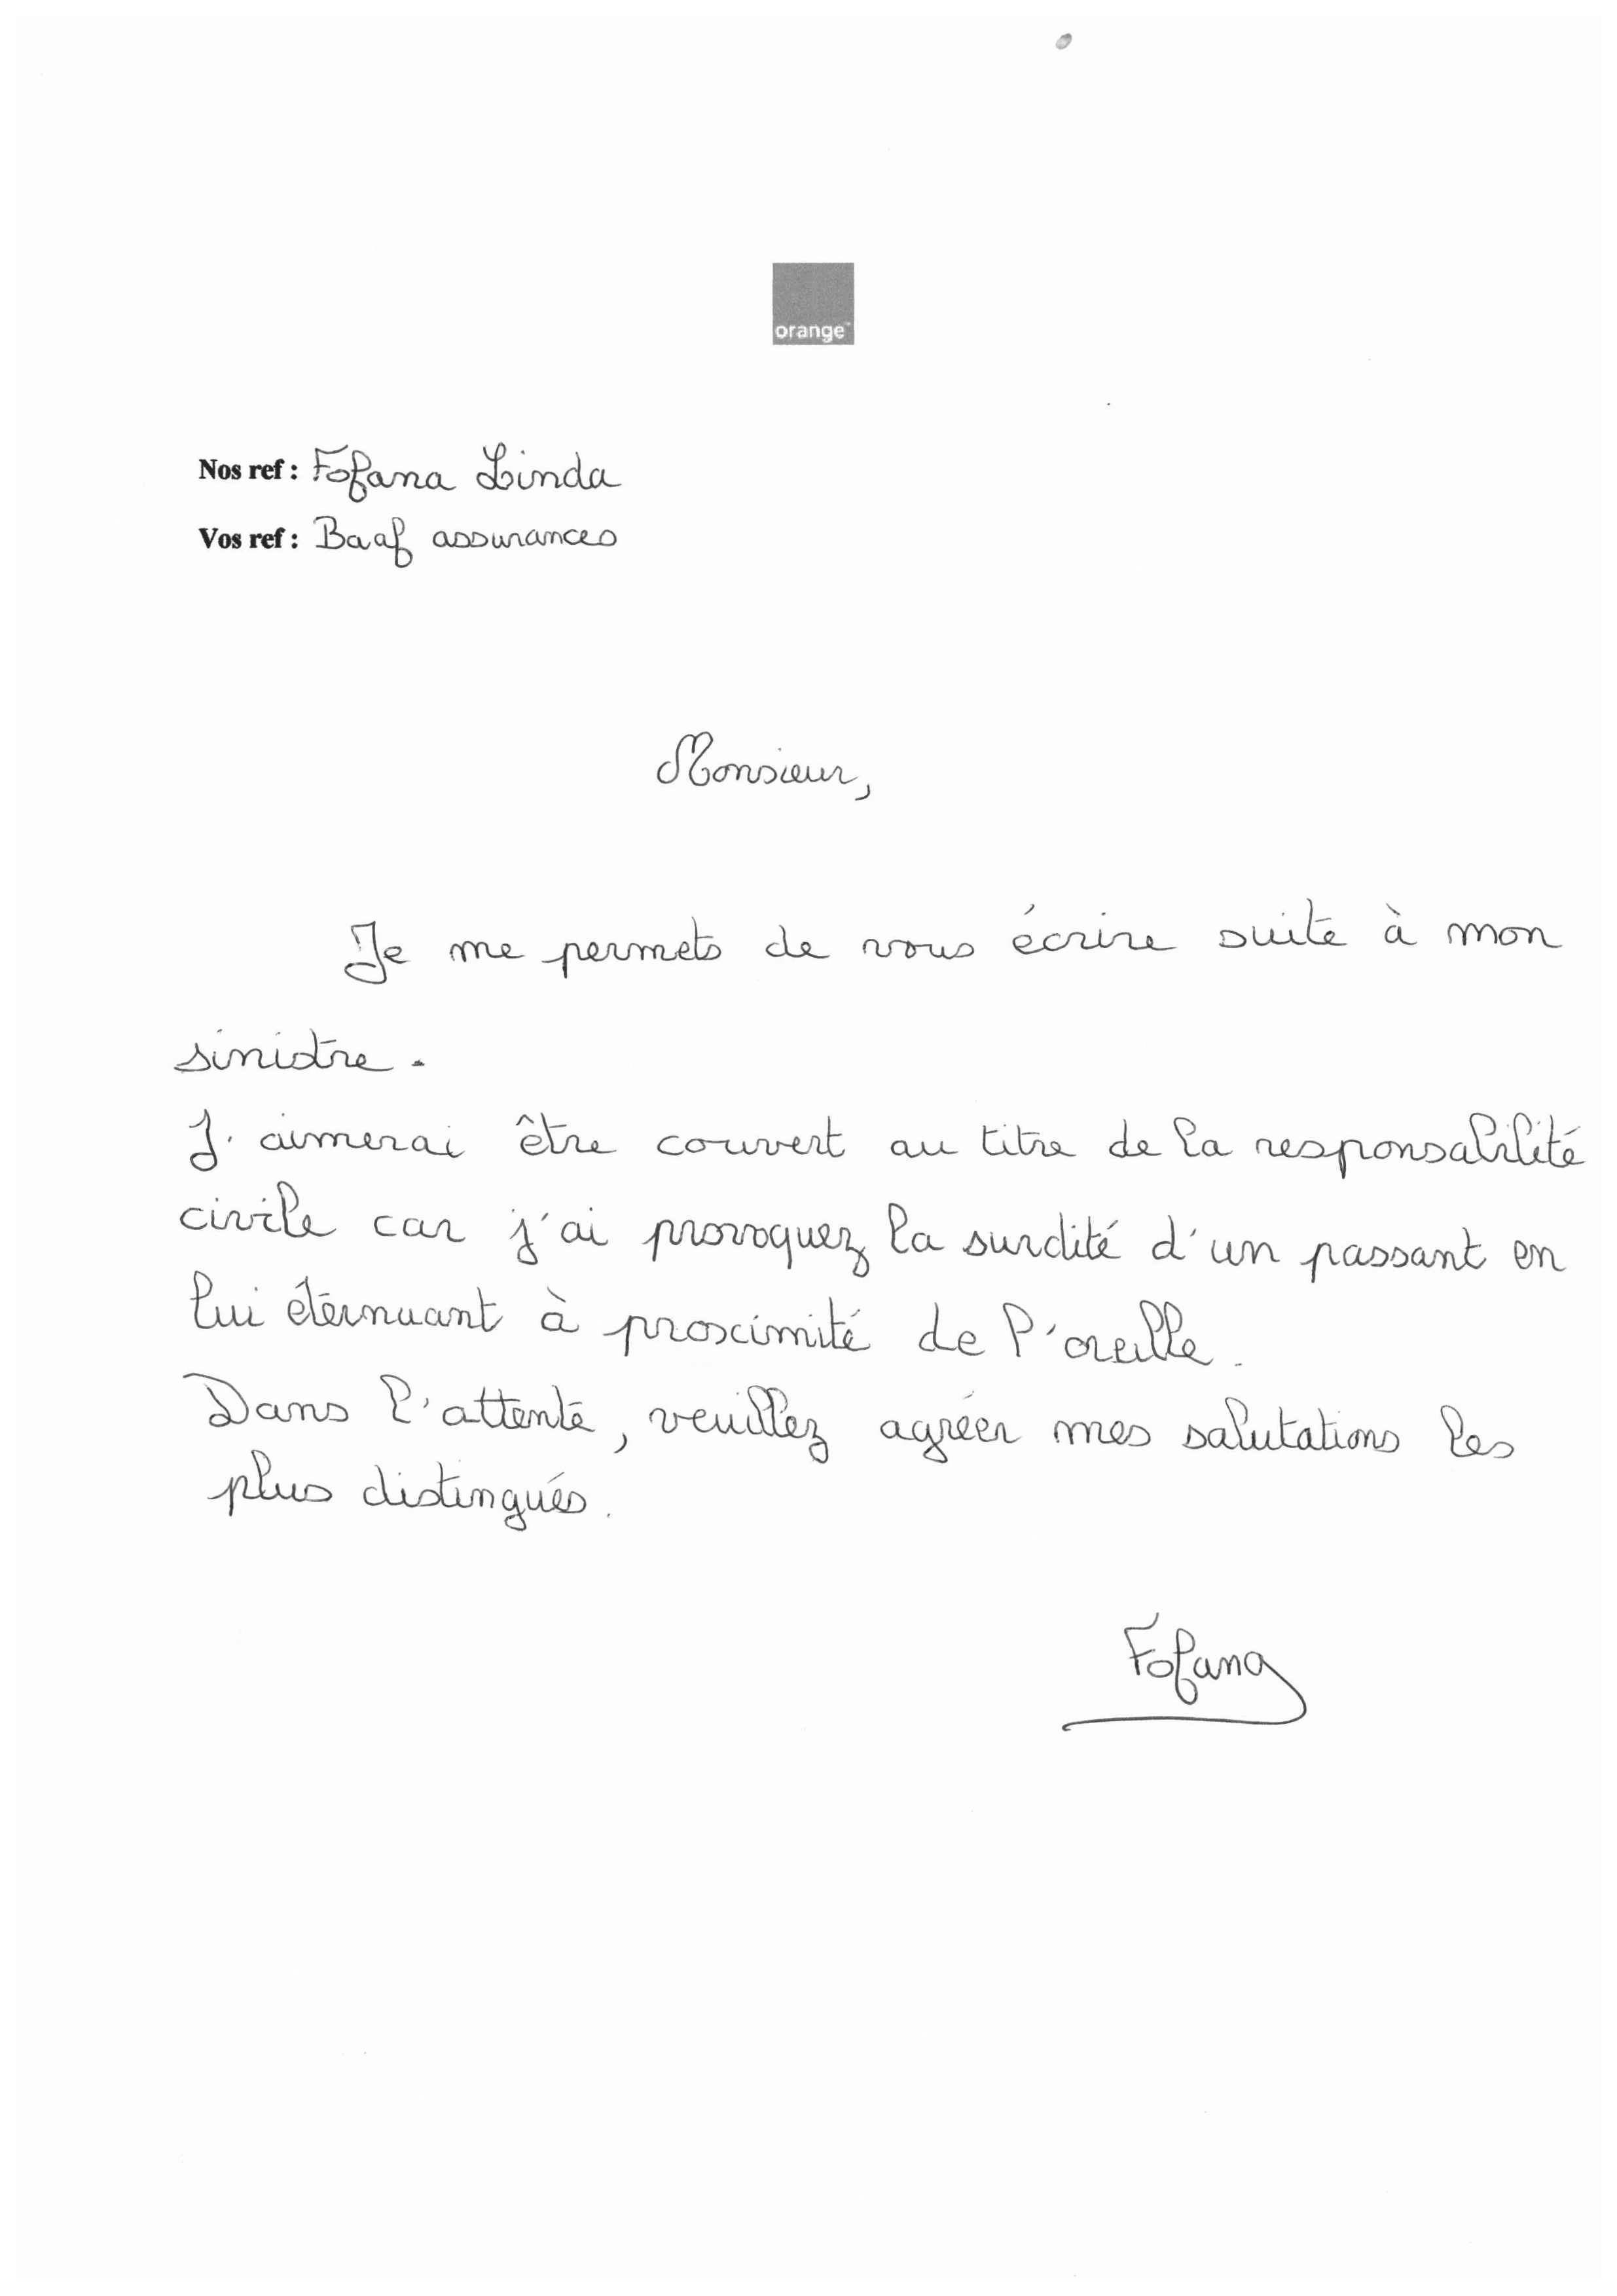 orange™
Nos ref : Fofana Linda
Vos ref : Baaf assurances
Monsieur,
Je me permets de vous écrire suite à mon
sinistre.
J'aimerai être couvert au titre de la responsabilité
civile car j'ai provoquez la surdité d'un passant en
lui éternuant à proximité de l'oreille.
Dans l'attente, veuillez agréer mes salutations les
plus distingués.
Fofana